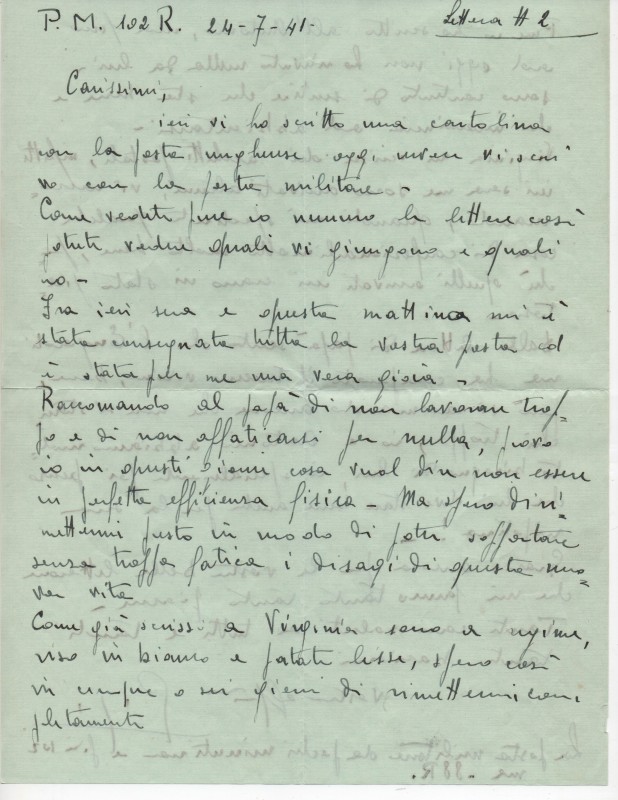 P. M. 102 R. 24-7-41- Lettera # 2
Carissimi,
ieri vi ho scritto una cartolina
con la posta ungherese oggi invece vi scri
vo con la posta militare -
Come vedete pure io numero le lettere così
potete vedere quali vi giungono e quali
no -
Fra ieri sera e questa mattina mi è
stata consegnata tutta la vostra posta ed
è stata per me una vera gioia -
Raccomando al papà di non lavorare trop-
po e di non affaticarsi per nulla, provo
io in questi giorni cosa vuol dire non essere
in perfetta efficienza fisica - Ma spero di ri-
mettermi presto in modo di poter sopportare
senza troppa fatica i disagi di questa nuo-
va vita
Come già scrissi a Virginia sono a regime,
riso in bianco e patate lesse, spero così
in cinque o sei giorni di rimettermi com
pletamente